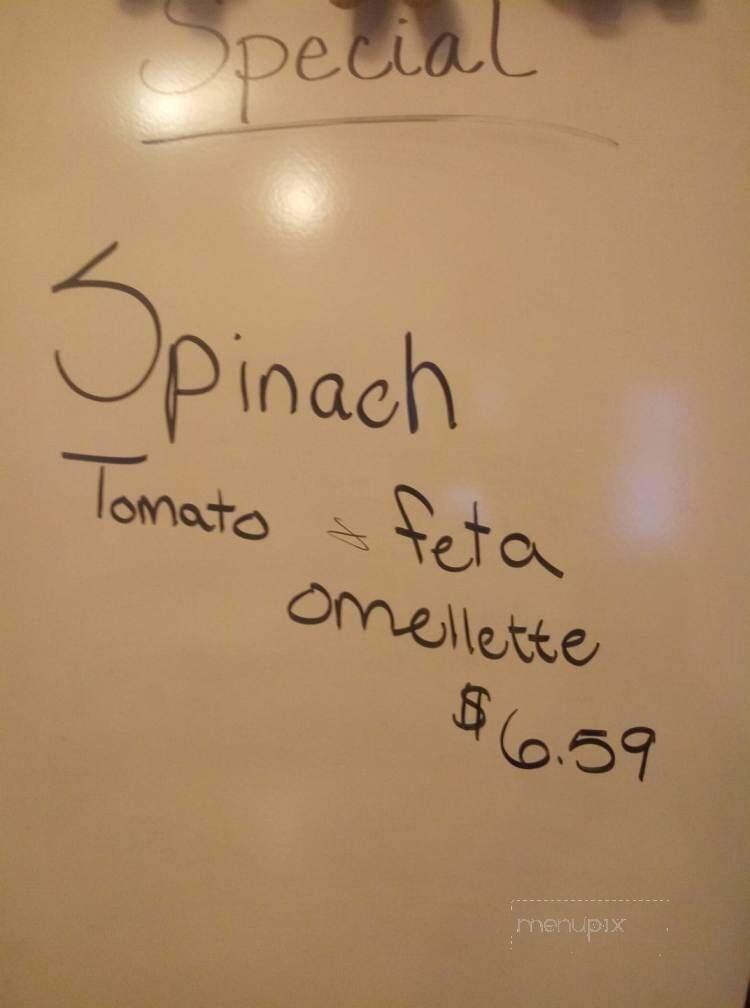 Special
Spinach
Tomato & feta
omellette
$6.59
menupix